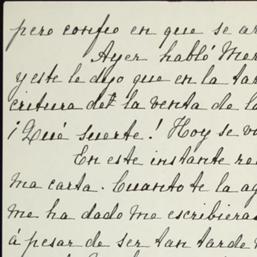 pero confío en que se ar
Ayer habló Mer
y este le dijo que en la tar
critura de la venta de lo
¡Qué suerte! Hoy se va
En este instante re
ma carta. Cuanto te la ag
me ha dado me escribieras
á pesar de ser tan tarde